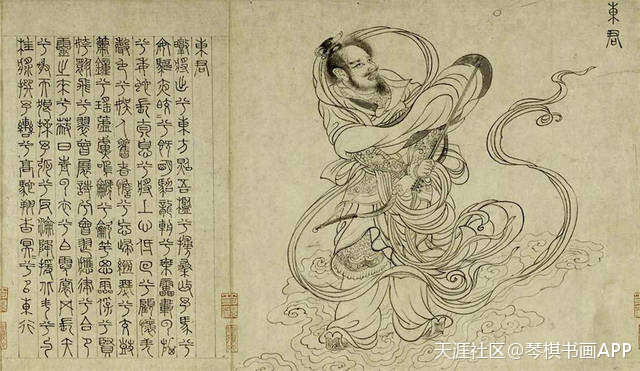 東君
東君
暾將出兮東方照吾檻兮扶桑撫余馬兮
安驅夜皎兮既明駕龍輈兮乘雷載雲旗
兮委蛇長太息兮將上心低佪兮顧懷羌
聲色兮娛人觀者憺兮忘歸縆瑟兮交鼓
簫鍾兮瑤簴鳴篪兮吹竽思靈保兮賢
姱翾飛兮翠曾展詩兮會舞應律兮合節
靈之來兮蔽日青雲衣兮白霓裳舉長矢
兮射天狼操余弧兮反淪降援北斗兮酌
桂漿撰余轡兮高駝翔杳冥冥兮以東行
天涯社区@琴棋书画APP